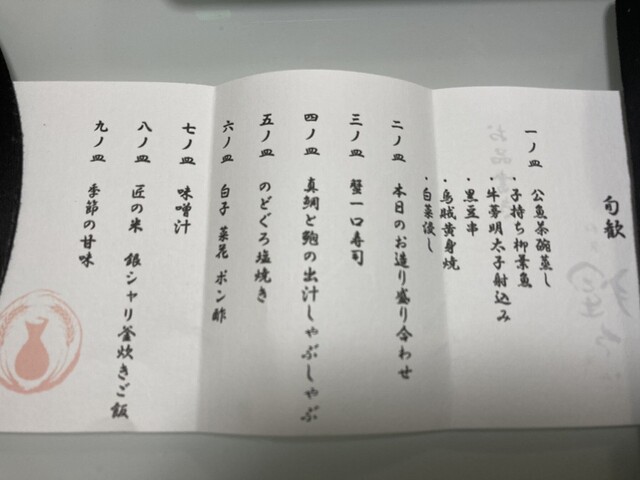 旬歓
一ノ皿 公魚茶碗蒸し
・子持ち柳葉魚
・牛蒡明太子射込み
・黒豆串
・烏賊黄身焼
・白菜浸し
二ノ皿 本日のお造り盛り合わせ
三ノ皿 蟹一口寿司
四ノ皿 真鯛と鮑の出汁しゃぶしゃぶ
五ノ皿 のどぐろ塩焼き
六ノ皿 白子 菜花 ポン酢
七ノ皿 味噌汁
八ノ皿 匠の米 銀シャリ釜炊きご飯
九ノ皿 季節の甘味